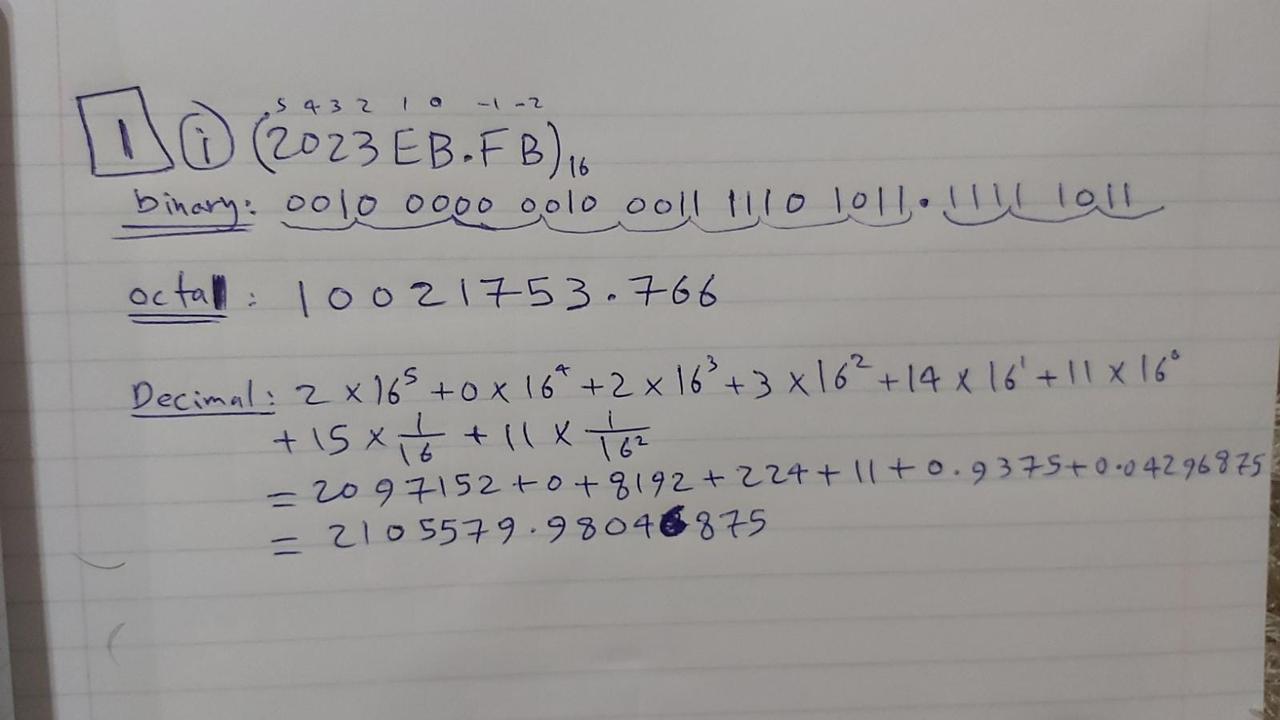 5 4 3 2 1 0 -1 -2
1 i (2023EB.FB)₁₆
binary: 0010 0000 0010 0011 1110 1011.1111 1011
octal: 10021753.766
Decimal: 2 × 16⁵ + 0 × 16⁴ + 2 × 16³ + 3 × 16² + 14 × 16¹ + 11 × 16⁰
+ 15 × 1/16 + 11 × 1/16²
= 2097152 + 0 + 8192 + 224 + 11 + 0.9375 + 0.04296875
= 2105579.98046875